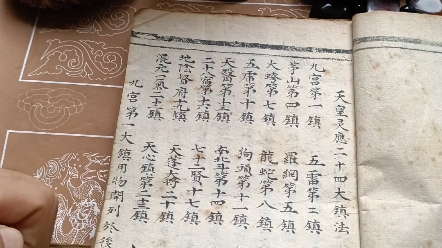 天皇灵應二十四大鎮法
九宮第一鎮 五雷第二鎮
茅山第四鎮 羅網第五鎮
火第七鎮 龍蛇第八鎮
五第十鎮 狗頭第十一鎮
天醫第十三鎮 北斗第十四鎮
二十八宿第十六鎮 七十二賢十七鎮
地陰府十九鎮 天蓬大將二十鎮
混元一氣二十二鎮 天心鎮第二十三鎮
九宮第一大鎮用物開列於後